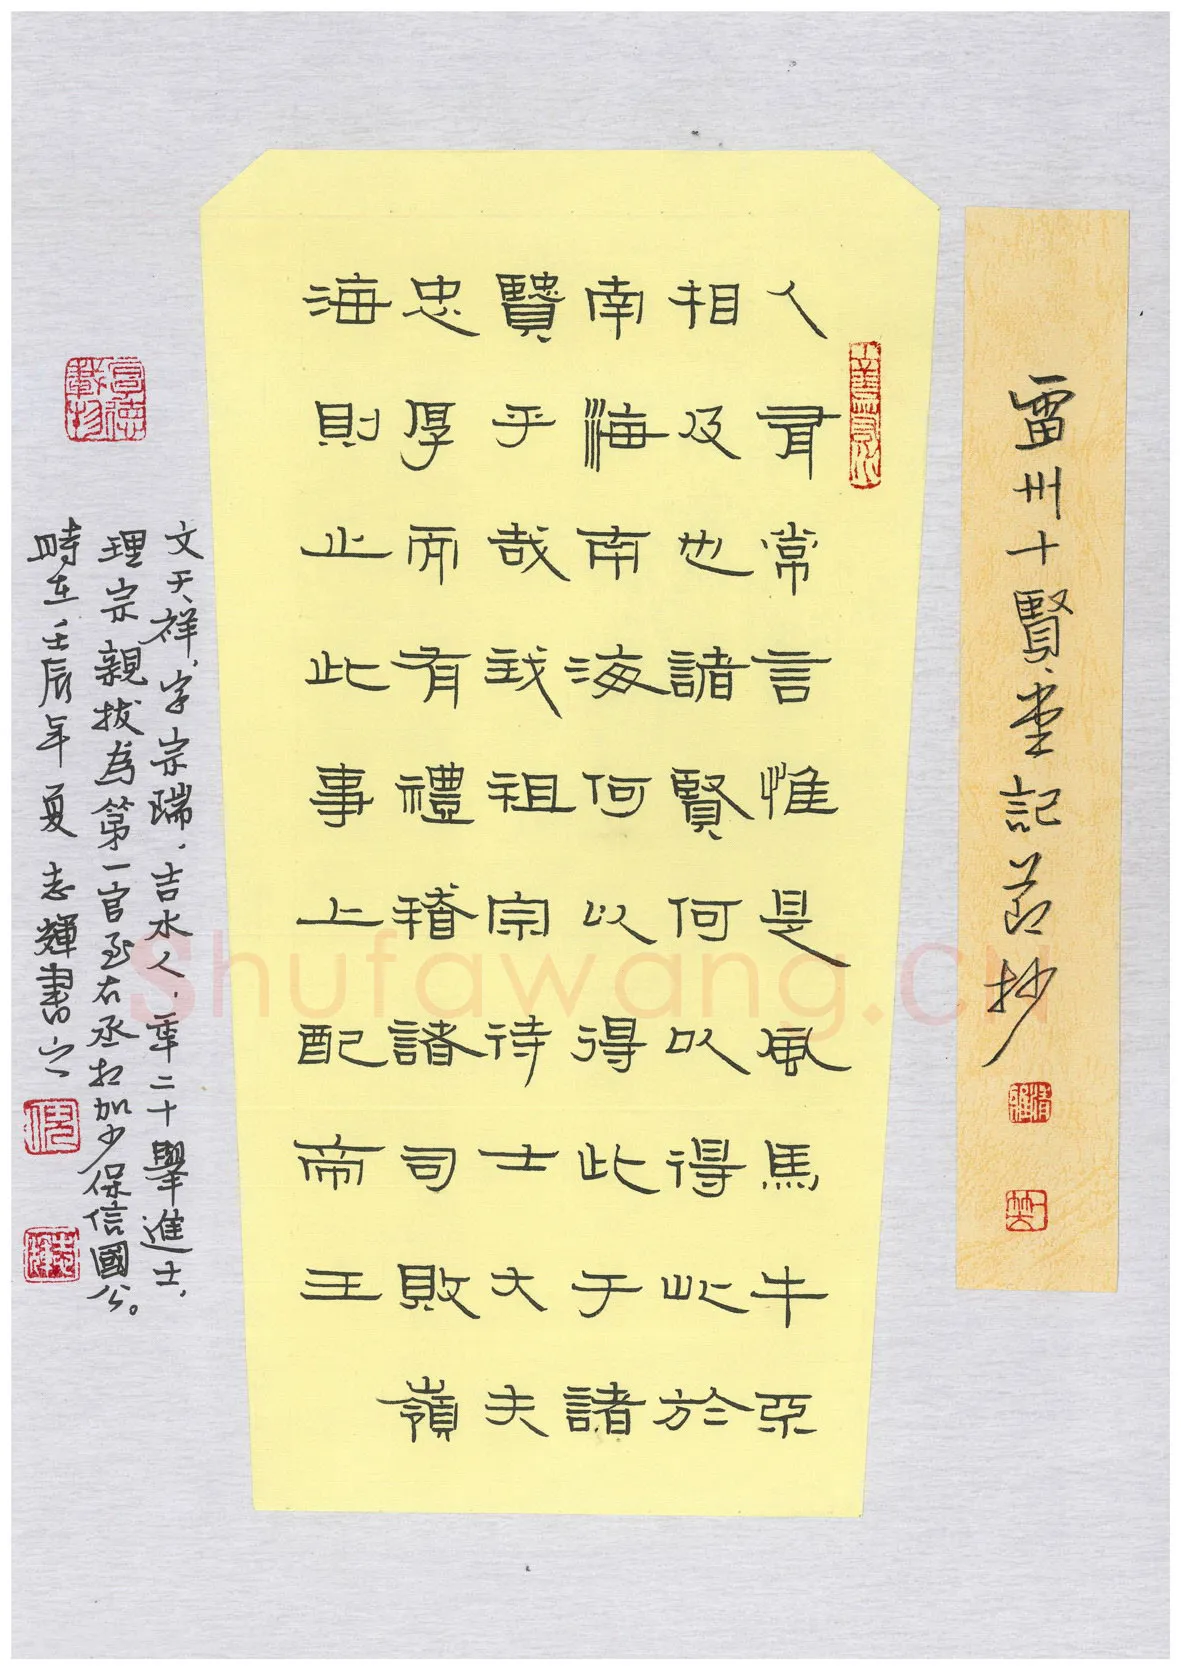 雷州十賢堂記節抄
上善若水
人有常言惟是風馬牛不
相及也諸賢何以得此於
南海南海何以得此于諸
賢乎哉我祖宗待士大夫
忠厚而有禮稽諸司敗嶺
海則止此事上配帝王
厚德載物
文天祥，字宗瑞，吉水人，年二十舉進士，
理宗親拔為第一官至右丞相加少保信國公。
時在壬辰年夏 志輝書之
志輝
Shufawang.CN